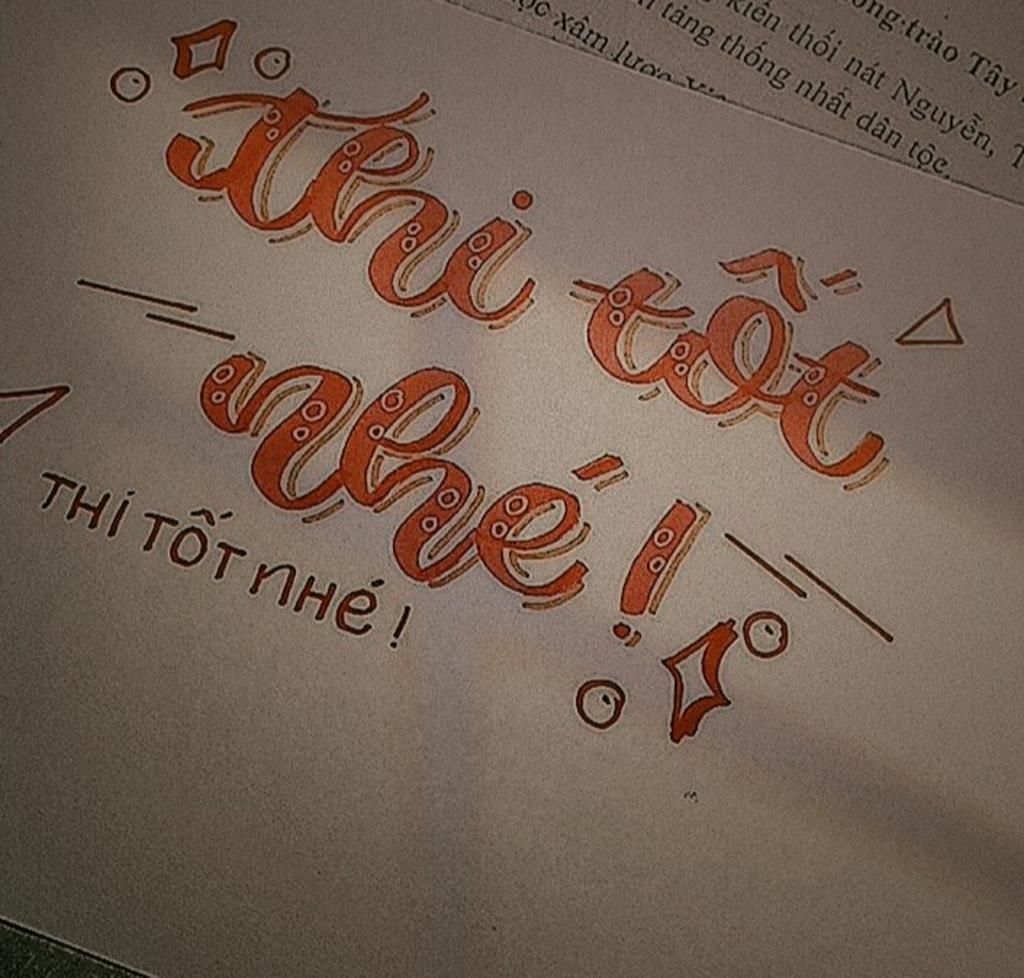 trào Tây
kiến thối nát Nguyễn,
tảng thống nhất dân tộc.
xâm lược
Thi tốt
nhé!
THI TỐT NHÉ!